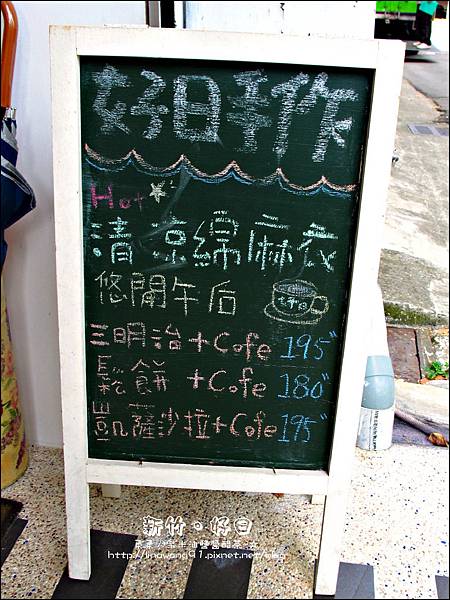 好日手作
Hot
清涼綿麻衣
悠閒午后
三明治+Cofe 195"
鬆餅+Cofe 180"
凱薩沙拉+Cofe 195"
新竹。好日